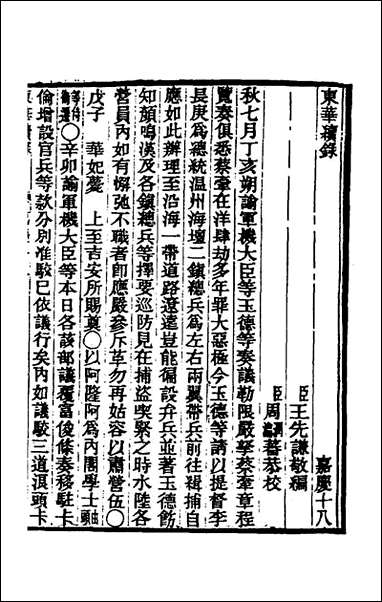 東華續錄
嘉慶十八
臣王先謙敬編
臣周
蕃恭校
秋七月丁亥朔諭軍機大臣等玉德等奏議勒限嚴拏蔡牽章程
覽奏俱悉蔡牽在洋肆劫多年罪大惡極今玉德等請以提督李
長庚爲總統温州海壇二鎭總兵爲左右兩翼帶兵前往緝捕自
應如此辦理至沿海一帶道路遼遠豈能徧設弁兵並著玉德飭
知顏鳴漢及各鎭總兵等擇要巡防見在捕盜喫緊之時水陸各
營員內如有懈弛不職者卽應嚴參斥革勿再姑容以肅營伍〇
戊子　華妃薨　上至吉安所賜奠〇以阿隆阿爲內閣學士由頭
等侍衞遷〇辛卯諭軍機大臣等本日各該部議覆富俊條奏移駐卡
倫增設官兵等款分別准駮已依議行矣內如議駮三道浪頭卡